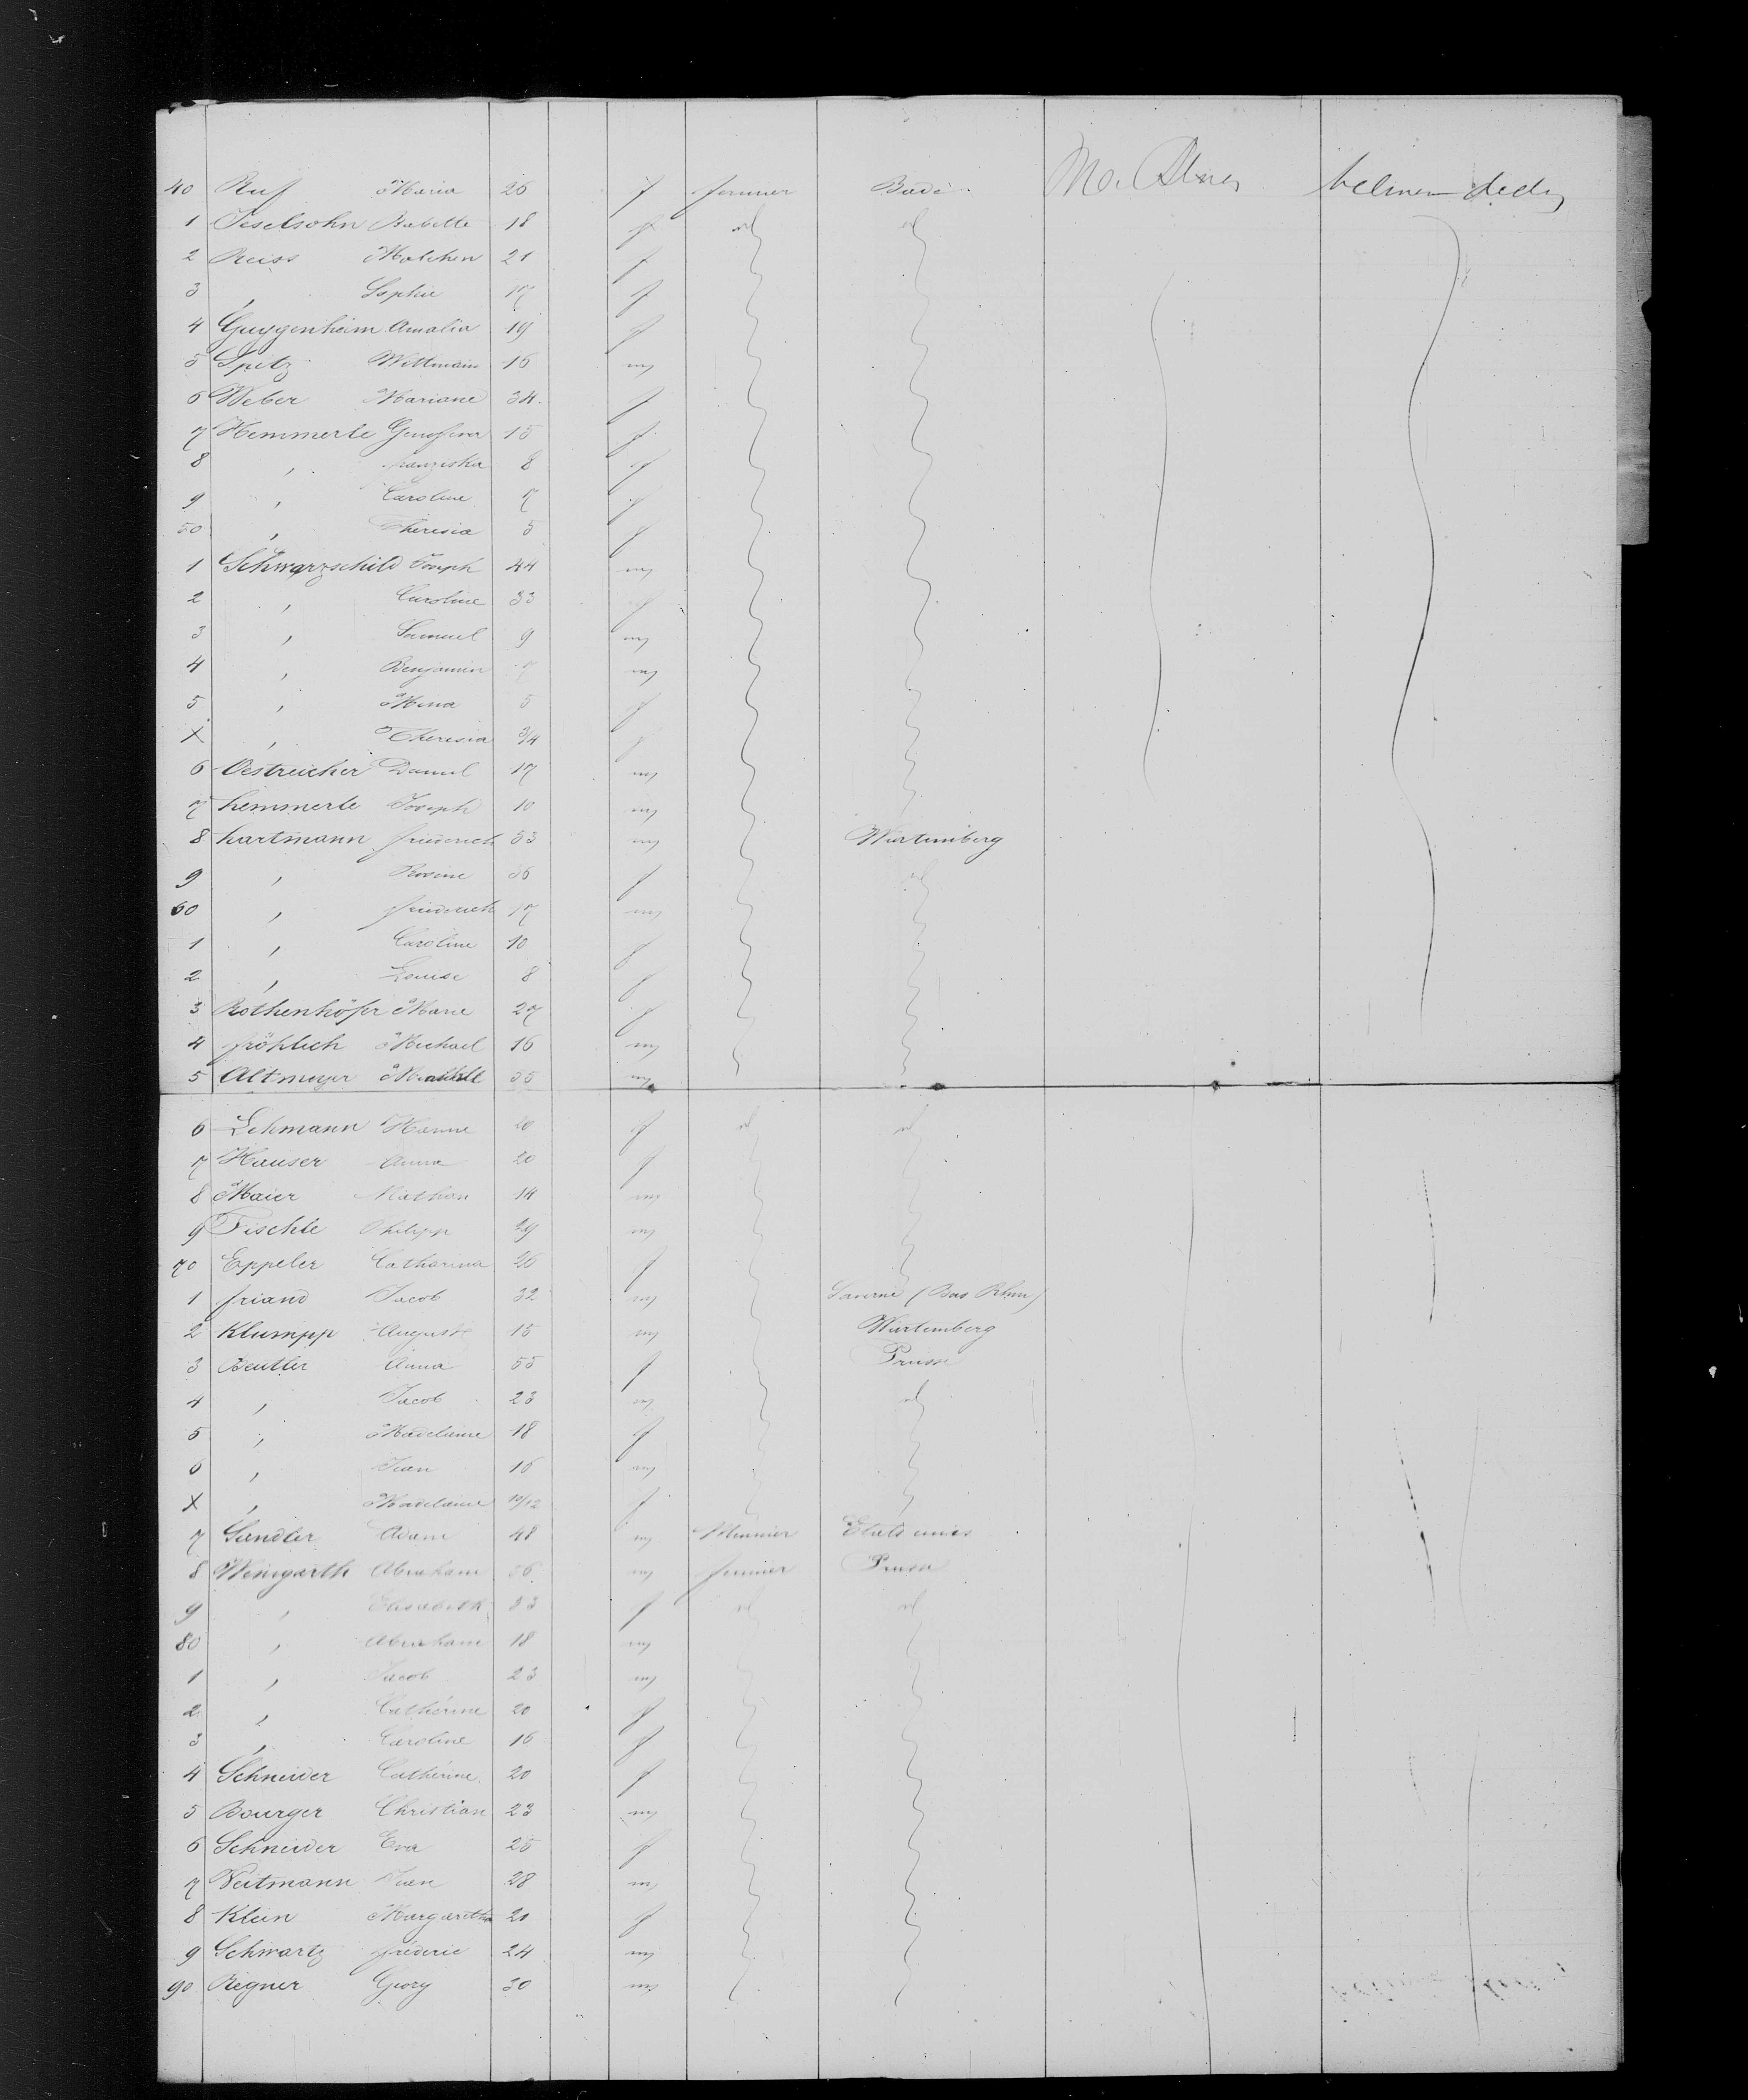 40 Ruf Maria 26 f fermier Bade
1 Jeselsohn Babette 18 f id id
2 Reiss Malchen 21 f
3 , Sophie 17 f
4 Guggenheim Amalia 19 f
5 Spitz Wittmain 16 m
6 Weber Mariane 34 f
7 Hemmerle 15 f
8 , franziska 8 f
9 , Caroline 7 f
50 , Theresia 5 f
1 Schwarzschild Joseph 44 m
2 , Caroline 33 f
3 , Samuel 9 m
4 , Benjamin 7 m
5 , Mina 5 f
X , Theresia 3/4 f
6 Oestreicher Daniel 17 m
7 hemmerle Joseph 10 m
8 hartmann friederich 53 m Wurtemberg
9 , Rosine 36 f id
60 , friederich 17 m
1 , Caroline 10 f
2 , Louise 8 f
3 Rothenhöfer Marie 27 f
4 fröhlich Michael 16 m
5 Altmayer 35 m
6 Lehmann Hanne 20 f id id
7 Hauser Anna 20 f
8 Maier Nathan 14 m
9 Tischle Philipp 29 m
70 Eppeler Catharina 26 f
1 friand Jacob 32 m Saverne (Bas Rhin)
2 Klumpp August 15 m Wurtemberg
3 Beutler Anna 55 f Prusse
4 , Jacob 23 m id
5 , Madelaine 18 f
6 , Jean 16 m
X , Madelaine 10/12 f
7 Sandler Adam 48 m Etats unis
8 Weingarth Abraham 56 m fermier Prusse
9 , Elisabeth 53 f id id
80 , Abraham 18 m
1 , Jacob 23 m
2 , Cathérine 20 f
3 , Caroline 16 f
4 Schneider Cathérine 20 f
5 Bourger Christian 23 m
6 Schneider Eva 25 f
7 Veitmann Jean 28 m
8 Klein Margaretha 21 f
9 Schwartz fréderic 24 m
90 Regner Georg 30 m